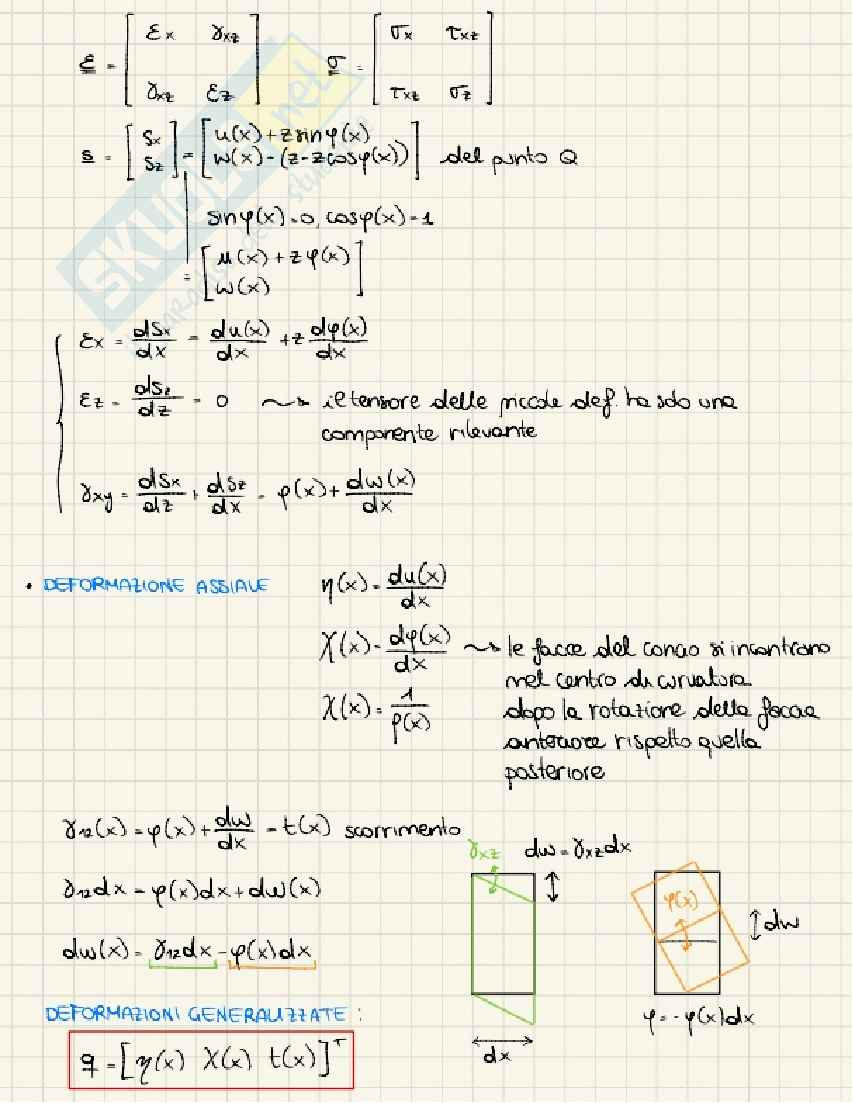 ε = [ εx γxz
γxz εz ] σ = [ σx τxz
τxz σz ]
s = [ sx
sz ] = [ u(x) + z sinφ(x)
w(x) - (z - z cosφ(x)) ] del punto Q
sinφ(x) = 0, cosφ(x) = 1
= [ u(x) + zφ(x)
w(x) ]
εx = dsx/dx = du(x)/dx + z dφ(x)/dx
εz = dsz/dz = 0 ⤳ il tensore delle piccole def. ha solo una
componente rilevante
γxy = dsx/dz + dsz/dx = φ(x) + dw(x)/dx
• DEFORMAZIONE ASSIALE η(x) = du(x)/dx
χ(x) = dφ(x)/dx ⤳ le facce del concio si incontrano
nel centro di curvatura
χ(x) = 1/ρ(x) dopo la rotazione della faccia
anteriore rispetto quella
posteriore
γ12(x) = φ(x) + dw/dx = t(x) scorrimento
γxz dw = γxz dx
γ12dx = φ(x)dx + dw(x)
φ(x)
dw
dw(x) = γ12dx - φ(x)dx
DEFORMAZIONI GENERALIZZATE :
φ = -φ(x)dx
q = [η(x) χ(x) t(x)]ᵀ
dx
SKUOLA.net